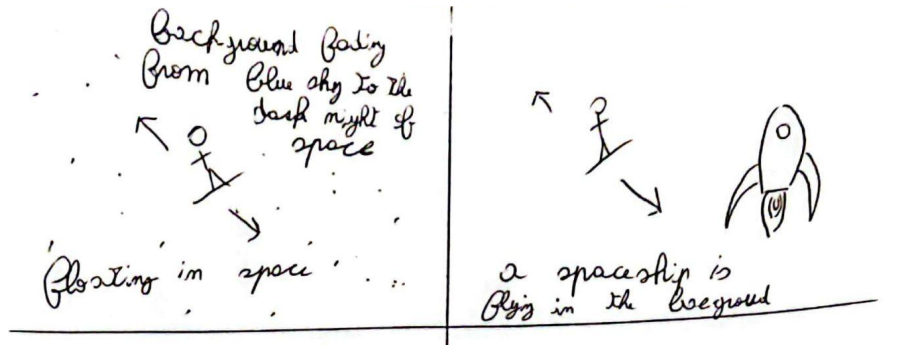 background fading
from blue sky to the
dark night of
space
floating in space
a spaceship is
flying in the foreground